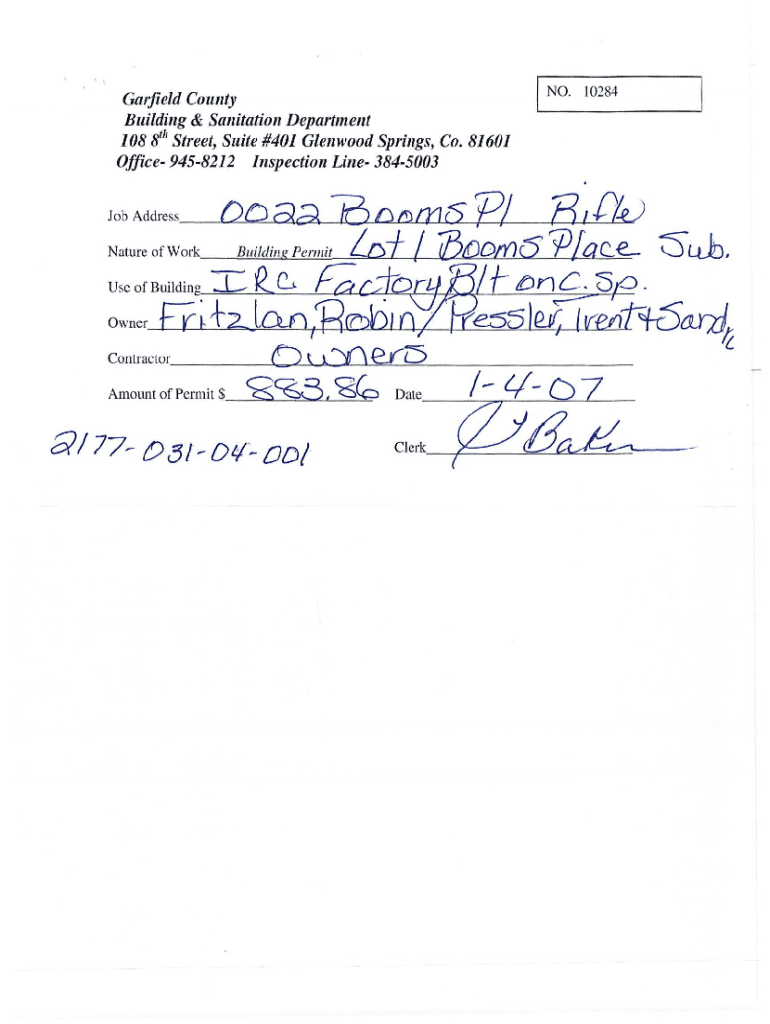 NO. 10284
Garfield County
Building & Sanitation Department
108 8th Street, Suite #401 Glenwood Springs, Co. 81601
Office- 945-8212 Inspection Line- 384-5003
Job Address 0022 Booms Pl Rifle
Nature of Work Building Permit Lot 1 Booms Place Sub.
Use of Building IRC Factory Blt on C. Sp.
Owner Fritzlan, Robin/Pressler, Trent & Sandra
Contractor Owners
Amount of Permit $ 883.86 Date 1-4-07
2177-031-04-001 Clerk Baker